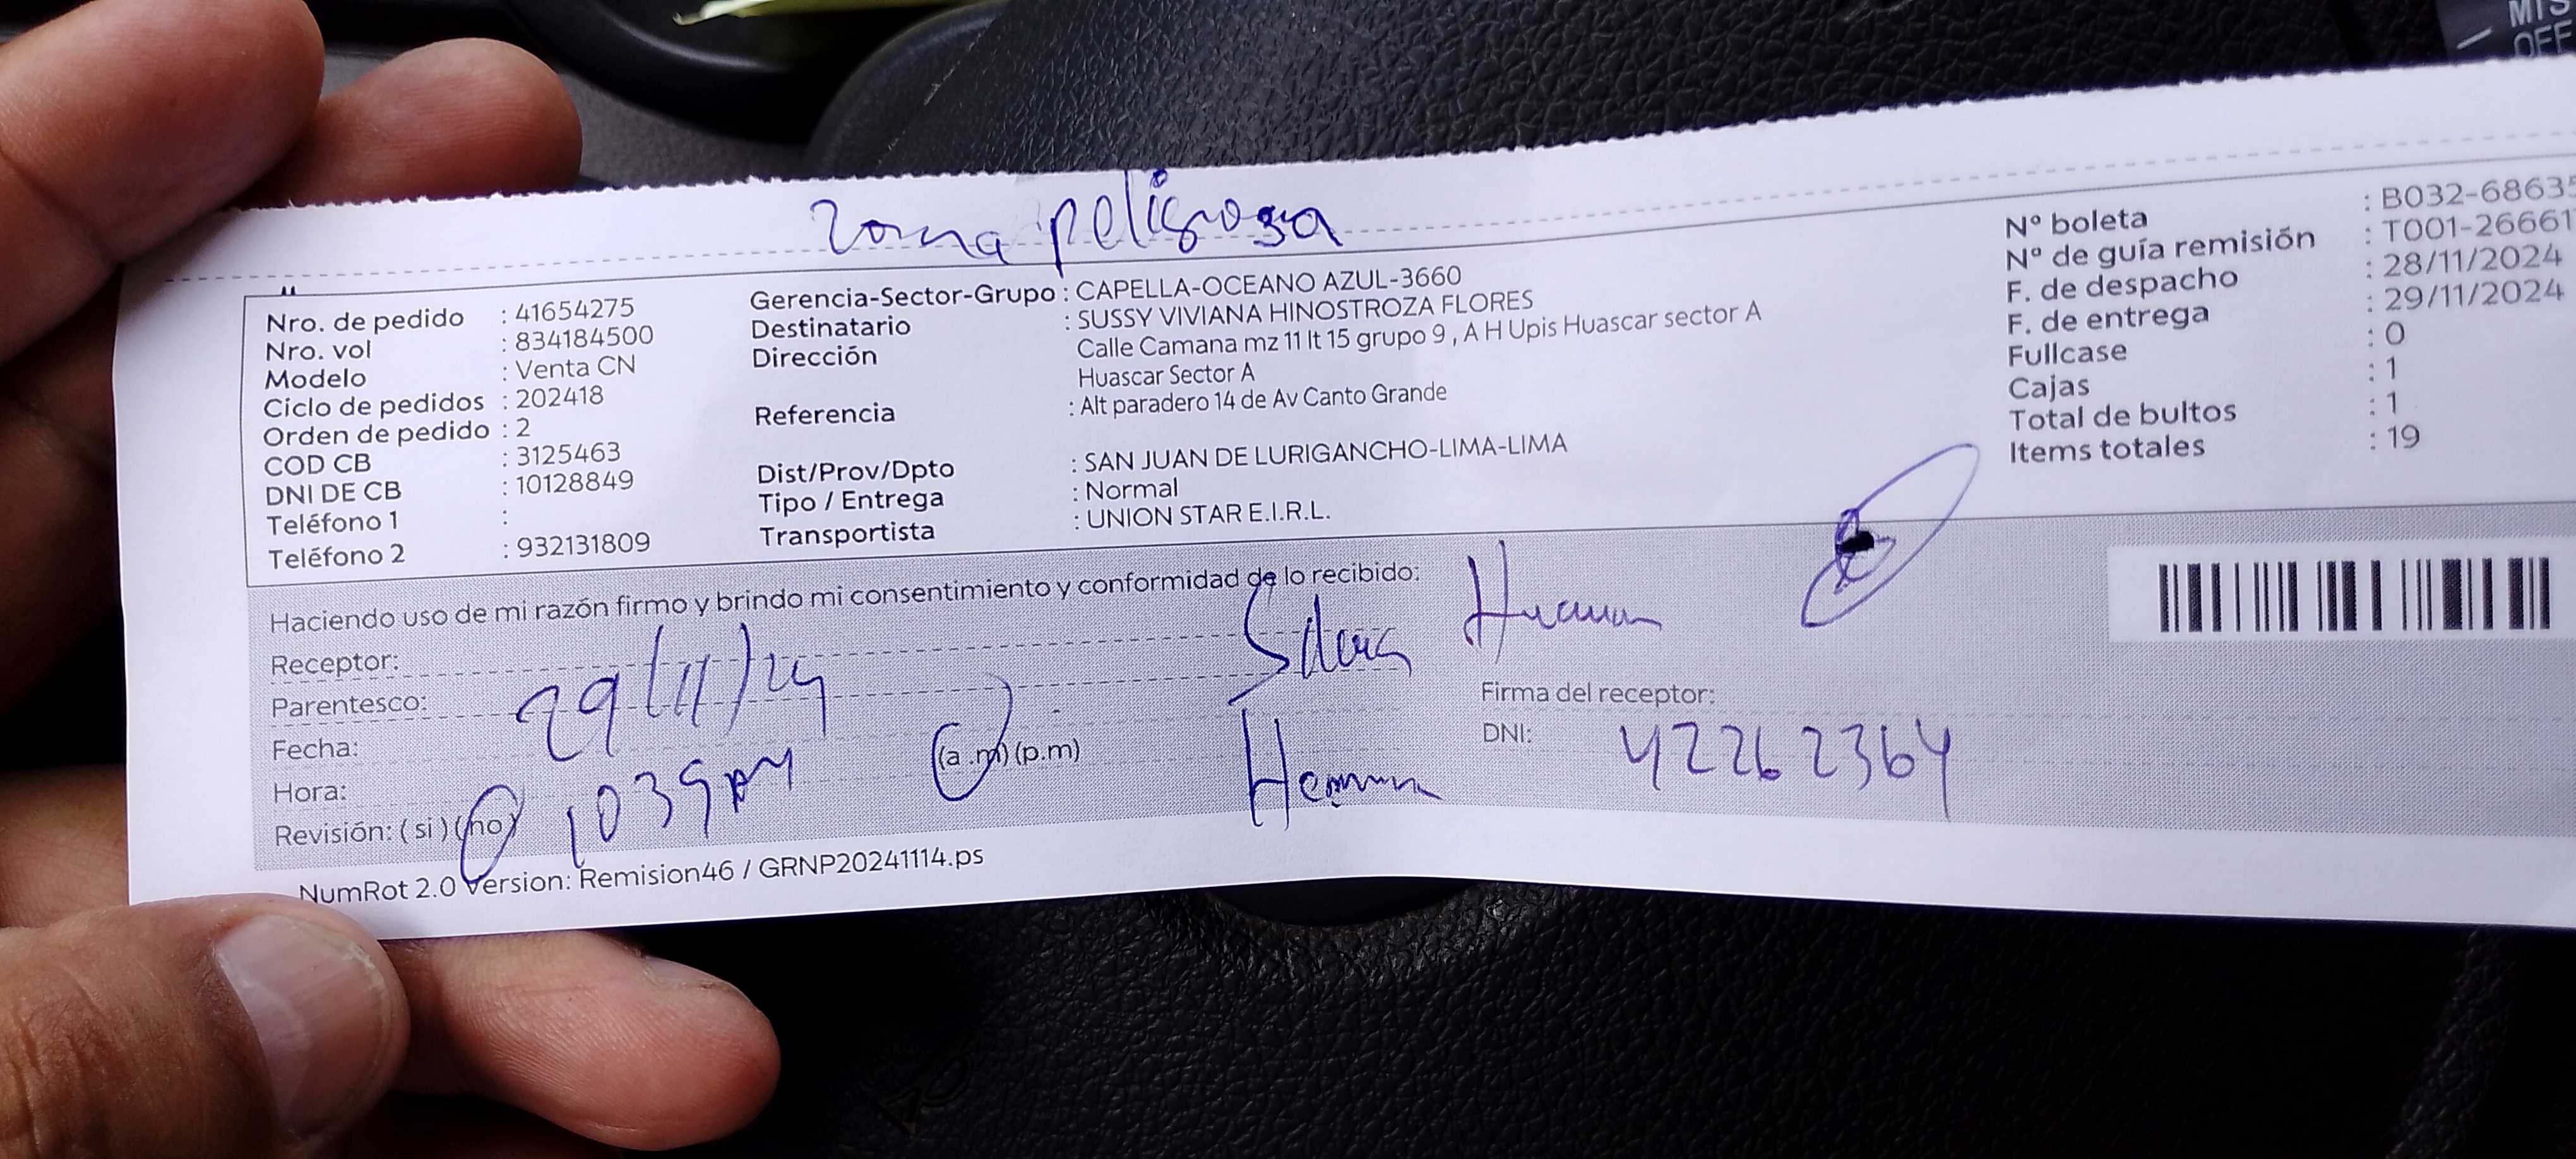 MIS
OFF
Zona peligrosa
Nro. de pedido : 41654275
Nro. vol : 834184500
Modelo : Venta CN
Ciclo de pedidos : 202418
Orden de pedido : 2
COD CB : 3125463
DNI DE CB : 10128849
Teléfono 1 :
Teléfono 2 : 932131809
Gerencia-Sector-Grupo : CAPELLA-OCEANO AZUL-3660
Destinatario : SUSSY VIVIANA HINOSTROZA FLORES
Dirección Calle Camana mz 11 lt 15 grupo 9 , A H Upis Huascar sector A
Huascar Sector A
Referencia : Alt paradero 14 de Av Canto Grande
Dist/Prov/Dpto : SAN JUAN DE LURIGANCHO-LIMA-LIMA
Tipo / Entrega : Normal
Transportista : UNION STAR E.I.R.L.
Nº boleta : B032-68635
Nº de guía remisión : T001-26661
F. de despacho : 28/11/2024
F. de entrega : 29/11/2024
Fullcase : 0
Cajas : 1
Total de bultos : 1
Items totales : 19
Haciendo uso de mi razón firmo y brindo mi consentimiento y conformidad de lo recibido:
Receptor:
Parentesco:
Fecha: 29/11/24
Hora: 1039 am (a .m) (p.m)
Revisión: ( si ) (no)
Huaman
Firma del receptor:
DNI: 42262364
NumRot 2.0 Version: Remision46 / GRNP20241114.ps